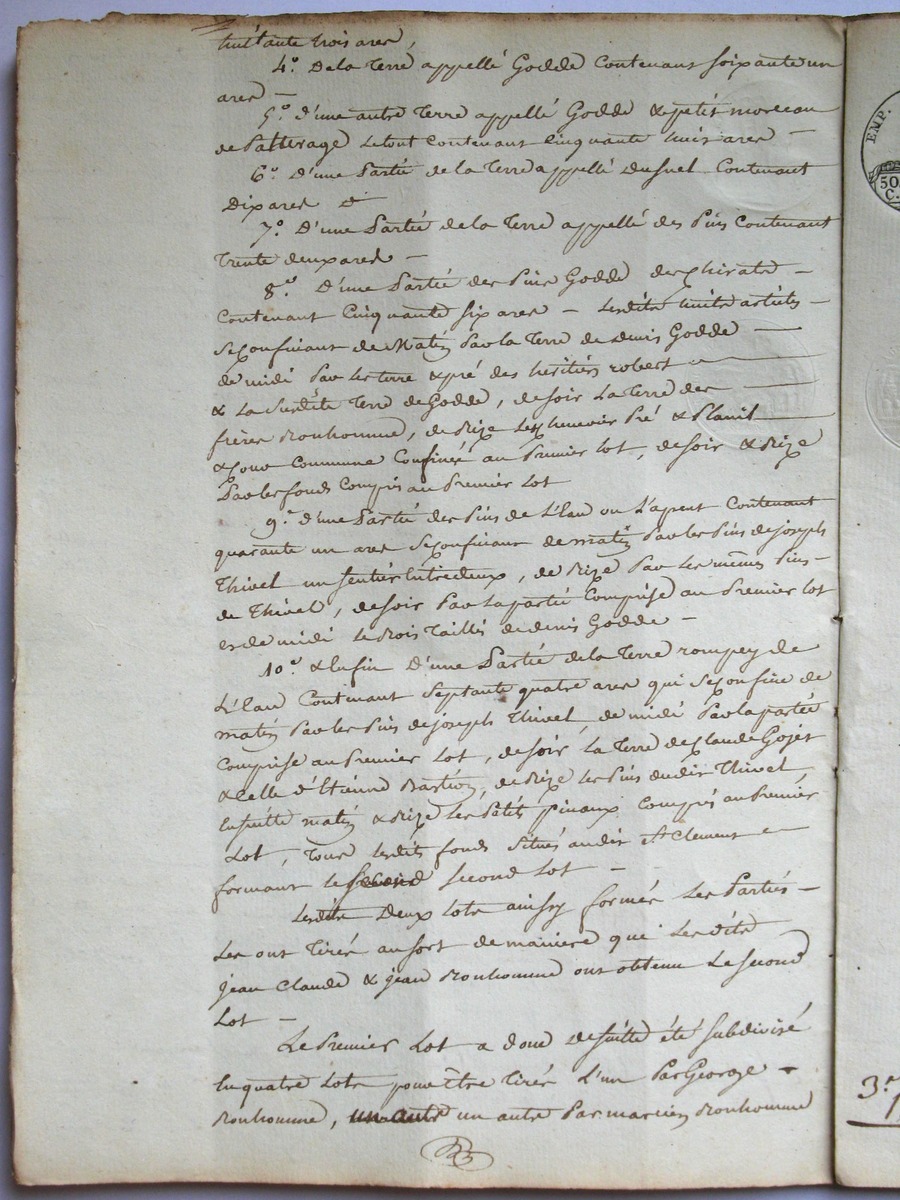 huittante trois ares,
4.° De la Terre appellé Godde Contenant soixante un
ares —
5.° d'une autre Terre appellé Godde & petit morceau
de Patterage le tout contenant Cinquante huit ares —
6.° D'une Partie de la Terre appellé Dusuel Contenant
Dix ares
7.° D'une Partie de la Terre appellé des Pins Contenant
Trente deux ares —
8.° D'une Partie des Pins Godde des —
Contenant Cinquante six ares — Lesdits huits articles —
Se Confinant de Matin Par la Terre de denis Godde —
de midi Par les terre & pré des hésitiers robert —
& La Susdite Terre de Godde, de soir La Terre des —
frères Bonhomme, de Bize Les chenevier Pré &
& Cour Commune Confinés au Premier Lot, de soir & Bize
Par les fonds Compris au Premier Lot
9.° d'une Partie des Pins de L'Eau ou L'apent Contenant
quarante un ares Se Confinant de matin Par les Pins de joseph
Thivel un sentier Entredeux, de Bize Par Les mêmes Pins —
de Thivel, de soir Par la partie Comprise au Premier Lot
et de midi Le Bois Taillis de denis Godde —
10.° & Enfin D'une Partie de la Terre rompey de
L'Eau Contenant Septante quatre ares qui se Confine de
matin Par les Pins de joseph Thivel, de midi Par la partie
Comprise au Premier Lot, de soir La Terre de Claude Gojet
& celle d'Etienne Bastion, de Bize les Pins dudit Thivel,
Ensuitte matin & Bize Les Petits pinaux Compris au Premier
Lot, Tous lesdits fonds Situés audit St Clement —
formant le second Lot —
Lesdits Deux Lots ainsy formés Les Parties —
Les ont Tirés au sort de maniere que Lesdits
jean Claude & jean Bonhomme ont obtenu Le Second
Lot —
Le Premier Lot a donc desuitte été subdivisé
En quatre Lots pour être Tirés L'un Par George —
Bonhomme, un autre un autre Par marcien Bonhomme
EMP.
50
C.
3.e